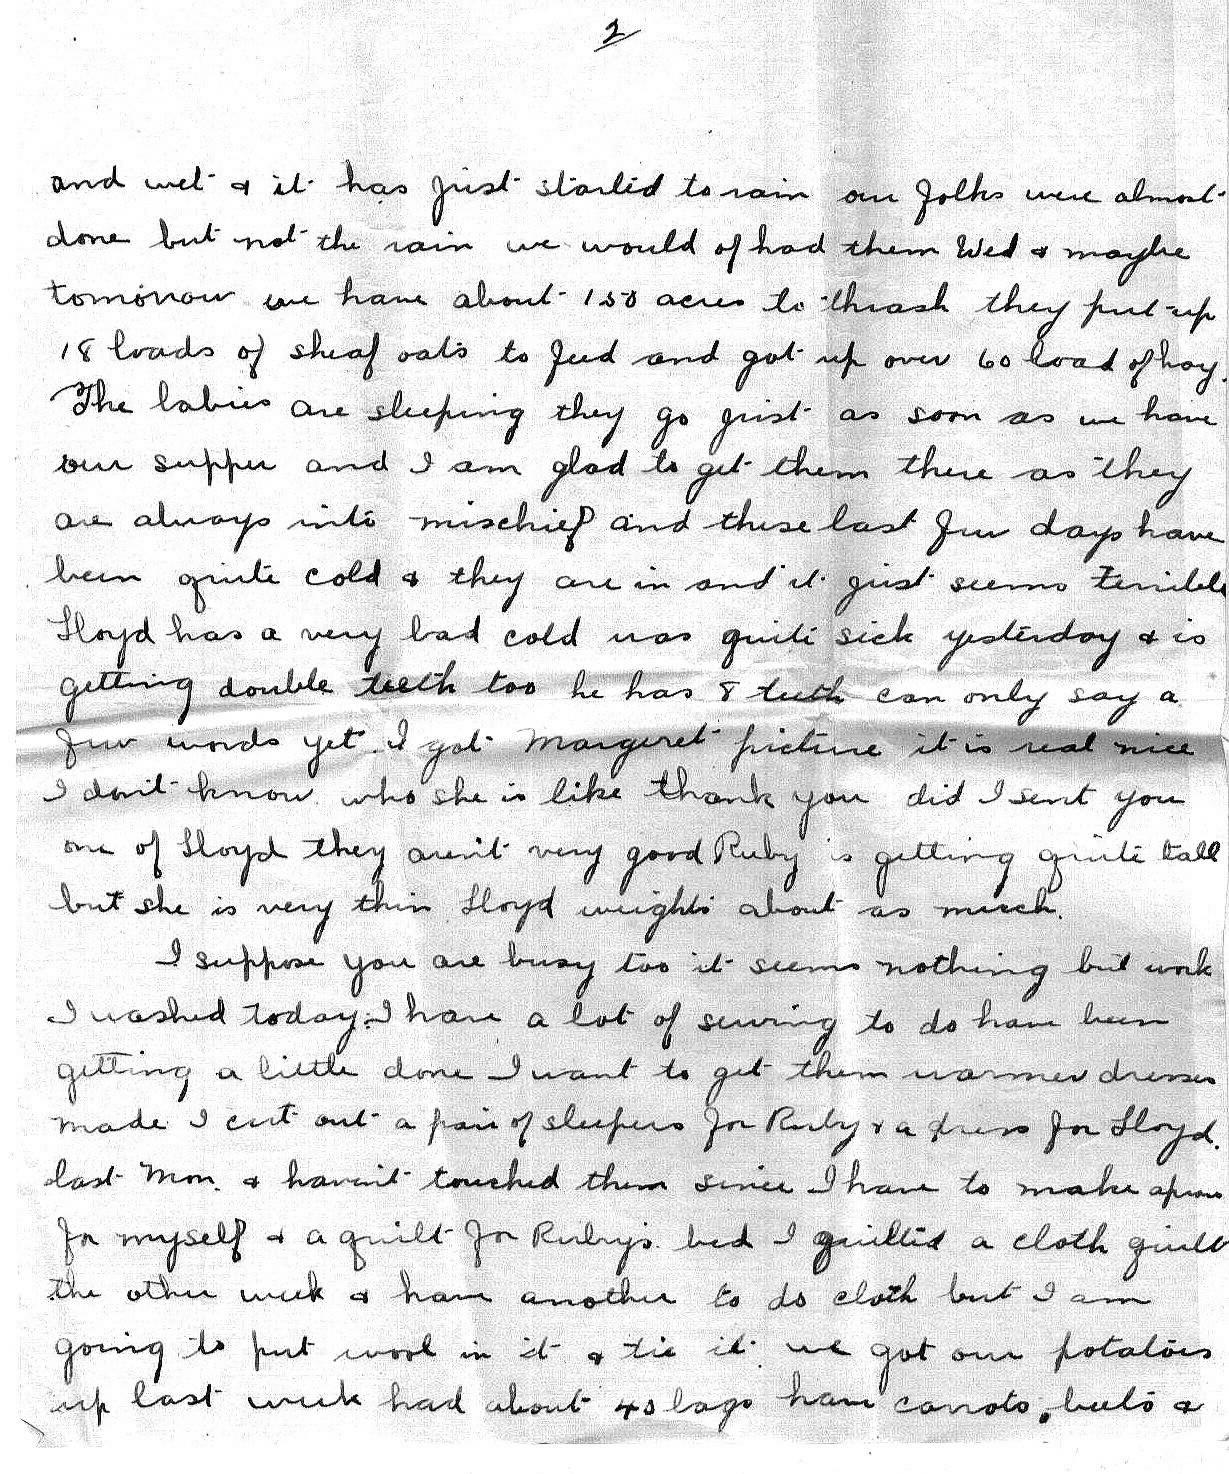 2
and wet & it has just started to rain our folks were almost
done but not the rain we would of had them Wed & maybe
tomorrow we have about 150 acres to thrash they put up
18 loads of sheaf oats to feed and got up over 60 load of hay.
The babies are sleeping they go just as soon as we have
our supper and I am glad to get them there as they
are always into mischief and these last few days have
been quite cold & they are in and it just seems terrible
Lloyd has a very bad cold was quite sick yesterday & is
getting double teeth too he has 8 teeth can only say a
few words yet. I got Margeret picture it is real nice
I don't know who she is like thank you did I sent you
one of Lloyd they aren't very good Ruby is getting quite tall
but she is very thin Lloyd weights about as much.
I suppose you are busy too it seems nothing but work
I washed today. I have a lot of sewing to do have been
getting a little done I want to get them warmer dresses
made I cut out a pair of sleepers for Ruby & a dress for Lloyd.
last Mon. & haven't touched them since I have to make aprons
for myself & a quilt for Ruby's bed I quilted a cloth quilt
the other week & have another to do cloth but I am
going to put wool in it & tie it. we got our potatoes
up last week had about 40 bags have carrots, beets &